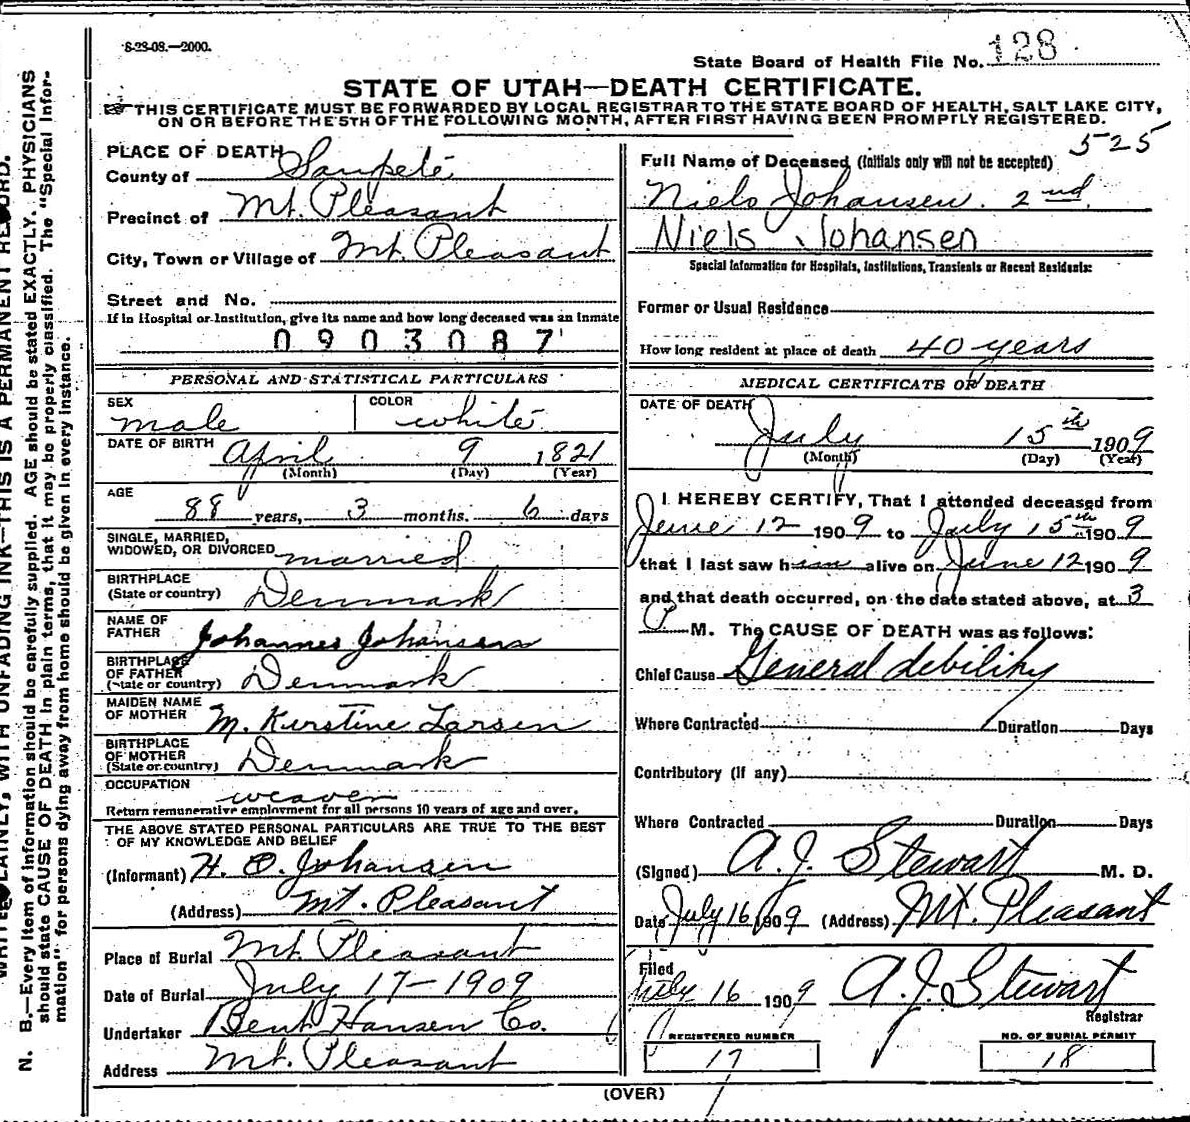 8-23-08.—2000.
State Board of Health File No. 128
STATE OF UTAH—DEATH CERTIFICATE.
THIS CERTIFICATE MUST BE FORWARDED BY LOCAL REGISTRAR TO THE STATE BOARD OF HEALTH, SALT LAKE CITY,
ON OR BEFORE THE 5TH OF THE FOLLOWING MONTH, AFTER FIRST HAVING BEEN PROMPTLY REGISTERED.
525
PLACE OF DEATH
County of Sanpete
Precinct of Mt. Pleasant
City, Town or Village of Mt. Pleasant
Street and No.
If in Hospital or Institution, give its name and how long deceased was an inmate
0903087
PERSONAL AND STATISTICAL PARTICULARS
SEX male COLOR white
DATE OF BIRTH April 9 1821
(Month) (Day) (Year)
AGE
88 years, 3 months. 6 days
SINGLE, MARRIED,
WIDOWED, OR DIVORCED married
BIRTHPLACE
(State or country) Denmark
NAME OF
FATHER Johannes Johansen
BIRTHPLACE
OF FATHER
(State or country) Denmark
MAIDEN NAME
OF MOTHER M. Kirstine Larsen
BIRTHPLACE
OF MOTHER
(State or country) Denmark
OCCUPATION weaver
Return remunerative employment for all persons 10 years of age and over.
THE ABOVE STATED PERSONAL PARTICULARS ARE TRUE TO THE BEST
OF MY KNOWLEDGE AND BELIEF
(Informant) H. C. Johansen
(Address) Mt. Pleasant
Place of Burial Mt. Pleasant
Date of Burial July 17-1909
Undertaker Bent Hansen Co.
Address Mt. Pleasant
Full Name of Deceased (Initials only will not be accepted)
Niels Johansen. 2nd.
Niels Johansen
Special Information for Hospitals, Institutions, Transients or Recent Residents:
Former or Usual Residence
How long resident at place of death 40 years
MEDICAL CERTIFICATE OF DEATH
DATE OF DEATH
July 15th 1909
(Month) (Day) (Year)
I HEREBY CERTIFY, That I attended deceased from
June 12 1909 to July 15th 1909
that I last saw him alive on June 12 1909
and that death occurred, on the date stated above, at 3
P M. The CAUSE OF DEATH was as follows:
Chief Cause General debility
Where Contracted Duration Days
Contributory (if any)
Where Contracted Duration Days
(Signed) A. J. Stewart M. D.
Date July 16 1909 (Address) Mt. Pleasant
Filed
July 16 1909 A. J. Stewart
Registrar
REGISTERED NUMBER
17
NO. OF BURIAL PERMIT
18
(OVER)
LAINLY, WITH UNFADING INK—THIS IS A PERMANENT RECORD.
N. B.—Every item of information should be carefully supplied. AGE should be stated EXACTLY. PHYSICIANS
should state CAUSE OF DEATH in plain terms, that it may be properly classified. The "Special Infor-
mation" for persons dying away from home should be given in every instance.